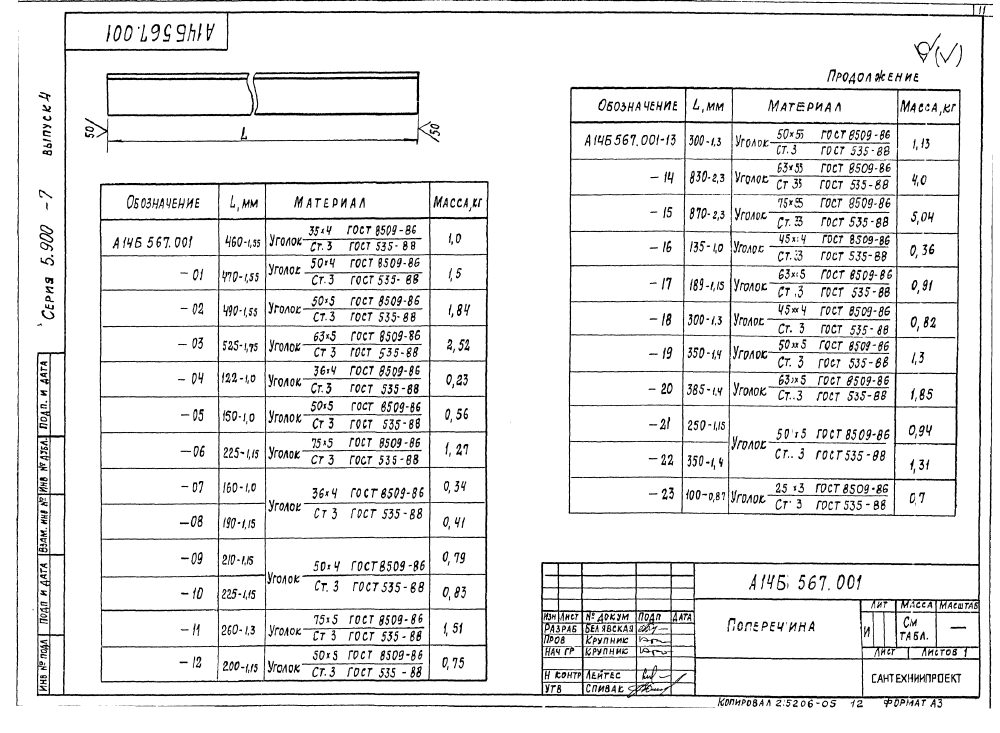 11
А14Б567.001
Серия 5.900-7 выпуск 4
50
L
50
Обозначение L, мм Материал Масса, кг
А14Б 567.001 460-1,55 Уголок 35×4 ГОСТ 8509-86 / Ст. 3 ГОСТ 535-88 1,0
-01 470-1,55 Уголок 50×4 ГОСТ 8509-86 / Ст. 3 ГОСТ 535-88 1,5
-02 490-1,55 Уголок 50×5 ГОСТ 8509-86 / Ст. 3 ГОСТ 535-88 1,84
-03 525-1,75 Уголок 63×5 ГОСТ 8509-86 / Ст 3 ГОСТ 535-88 2,52
-04 122-1,0 Уголок 36×4 ГОСТ 8509-86 / Ст. 3 ГОСТ 535-88 0,23
-05 150-1,0 Уголок 50×5 ГОСТ 8509-86 / Ст. 3 ГОСТ 535-88 0,56
-06 225-1,15 Уголок 75×5 ГОСТ 8509-86 / Ст 3 ГОСТ 535-88 1,27
-07 160-1,0 Уголок 36×4 ГОСТ 8509-86 / Ст 3 ГОСТ 535-88 0,34
-08 190-1,15 0,41
-09 210-1,15 Уголок 50×4 ГОСТ 8509-86 / Ст. 3 ГОСТ 535-88 0,79
-10 225-1,15 0,83
-11 260-1,3 Уголок 75×5 ГОСТ 8509-86 / Ст 3 ГОСТ 535-88 1,51
-12 200-1,15 Уголок 50×5 ГОСТ 8509-86 / Ст. 3 ГОСТ 535-88 0,75
Продолжение
Обозначение L, мм Материал Масса, кг
А14Б567.001-13 300-1,3 Уголок 50×5 ГОСТ 8509-86 / Ст. 3 ГОСТ 535-88 1,13
-14 830-2,3 Уголок 63×5 ГОСТ 8509-86 / Ст 3 ГОСТ 535-88 4,0
-15 870-2,3 Уголок 75×5 ГОСТ 8509-86 / Ст. 3 ГОСТ 535-88 5,04
-16 135-1,0 Уголок 45×4 ГОСТ 8509-86 / Ст. 3 ГОСТ 535-88 0,36
-17 189-1,15 Уголок 63×5 ГОСТ 8509-86 / Ст. 3 ГОСТ 535-88 0,91
-18 300-1,3 Уголок 45×4 ГОСТ 8509-86 / Ст. 3 ГОСТ 535-88 0,82
-19 350-1,4 Уголок 50×5 ГОСТ 8509-86 / Ст. 3 ГОСТ 535-88 1,3
-20 385-1,4 Уголок 63×5 ГОСТ 8509-86 / Ст. 3 ГОСТ 535-88 1,85
-21 250-1,15 Уголок 50×5 ГОСТ 8509-86 / Ст. 3 ГОСТ 535-88 0,94
-22 350-1,4 1,31
-23 100-0,87 Уголок 25×3 ГОСТ 8509-86 / Ст 3 ГОСТ 535-88 0,7
Инв № подл Подп и дата Взам. инв № Инв № дубл. Подп. и дата
А14Б 567.001
Изм Лист № докум Подп Дата
Разраб Белявская
Пров Крупник
Нач гр Крупник
Н контр Лейтес
Утв Спивак
Поперечина
Лит Масса Масштаб
И См табл. —
Лист Листов 1
САНТЕХНИИПРОЕКТ
Копировал 25206-05 12 Формат А3